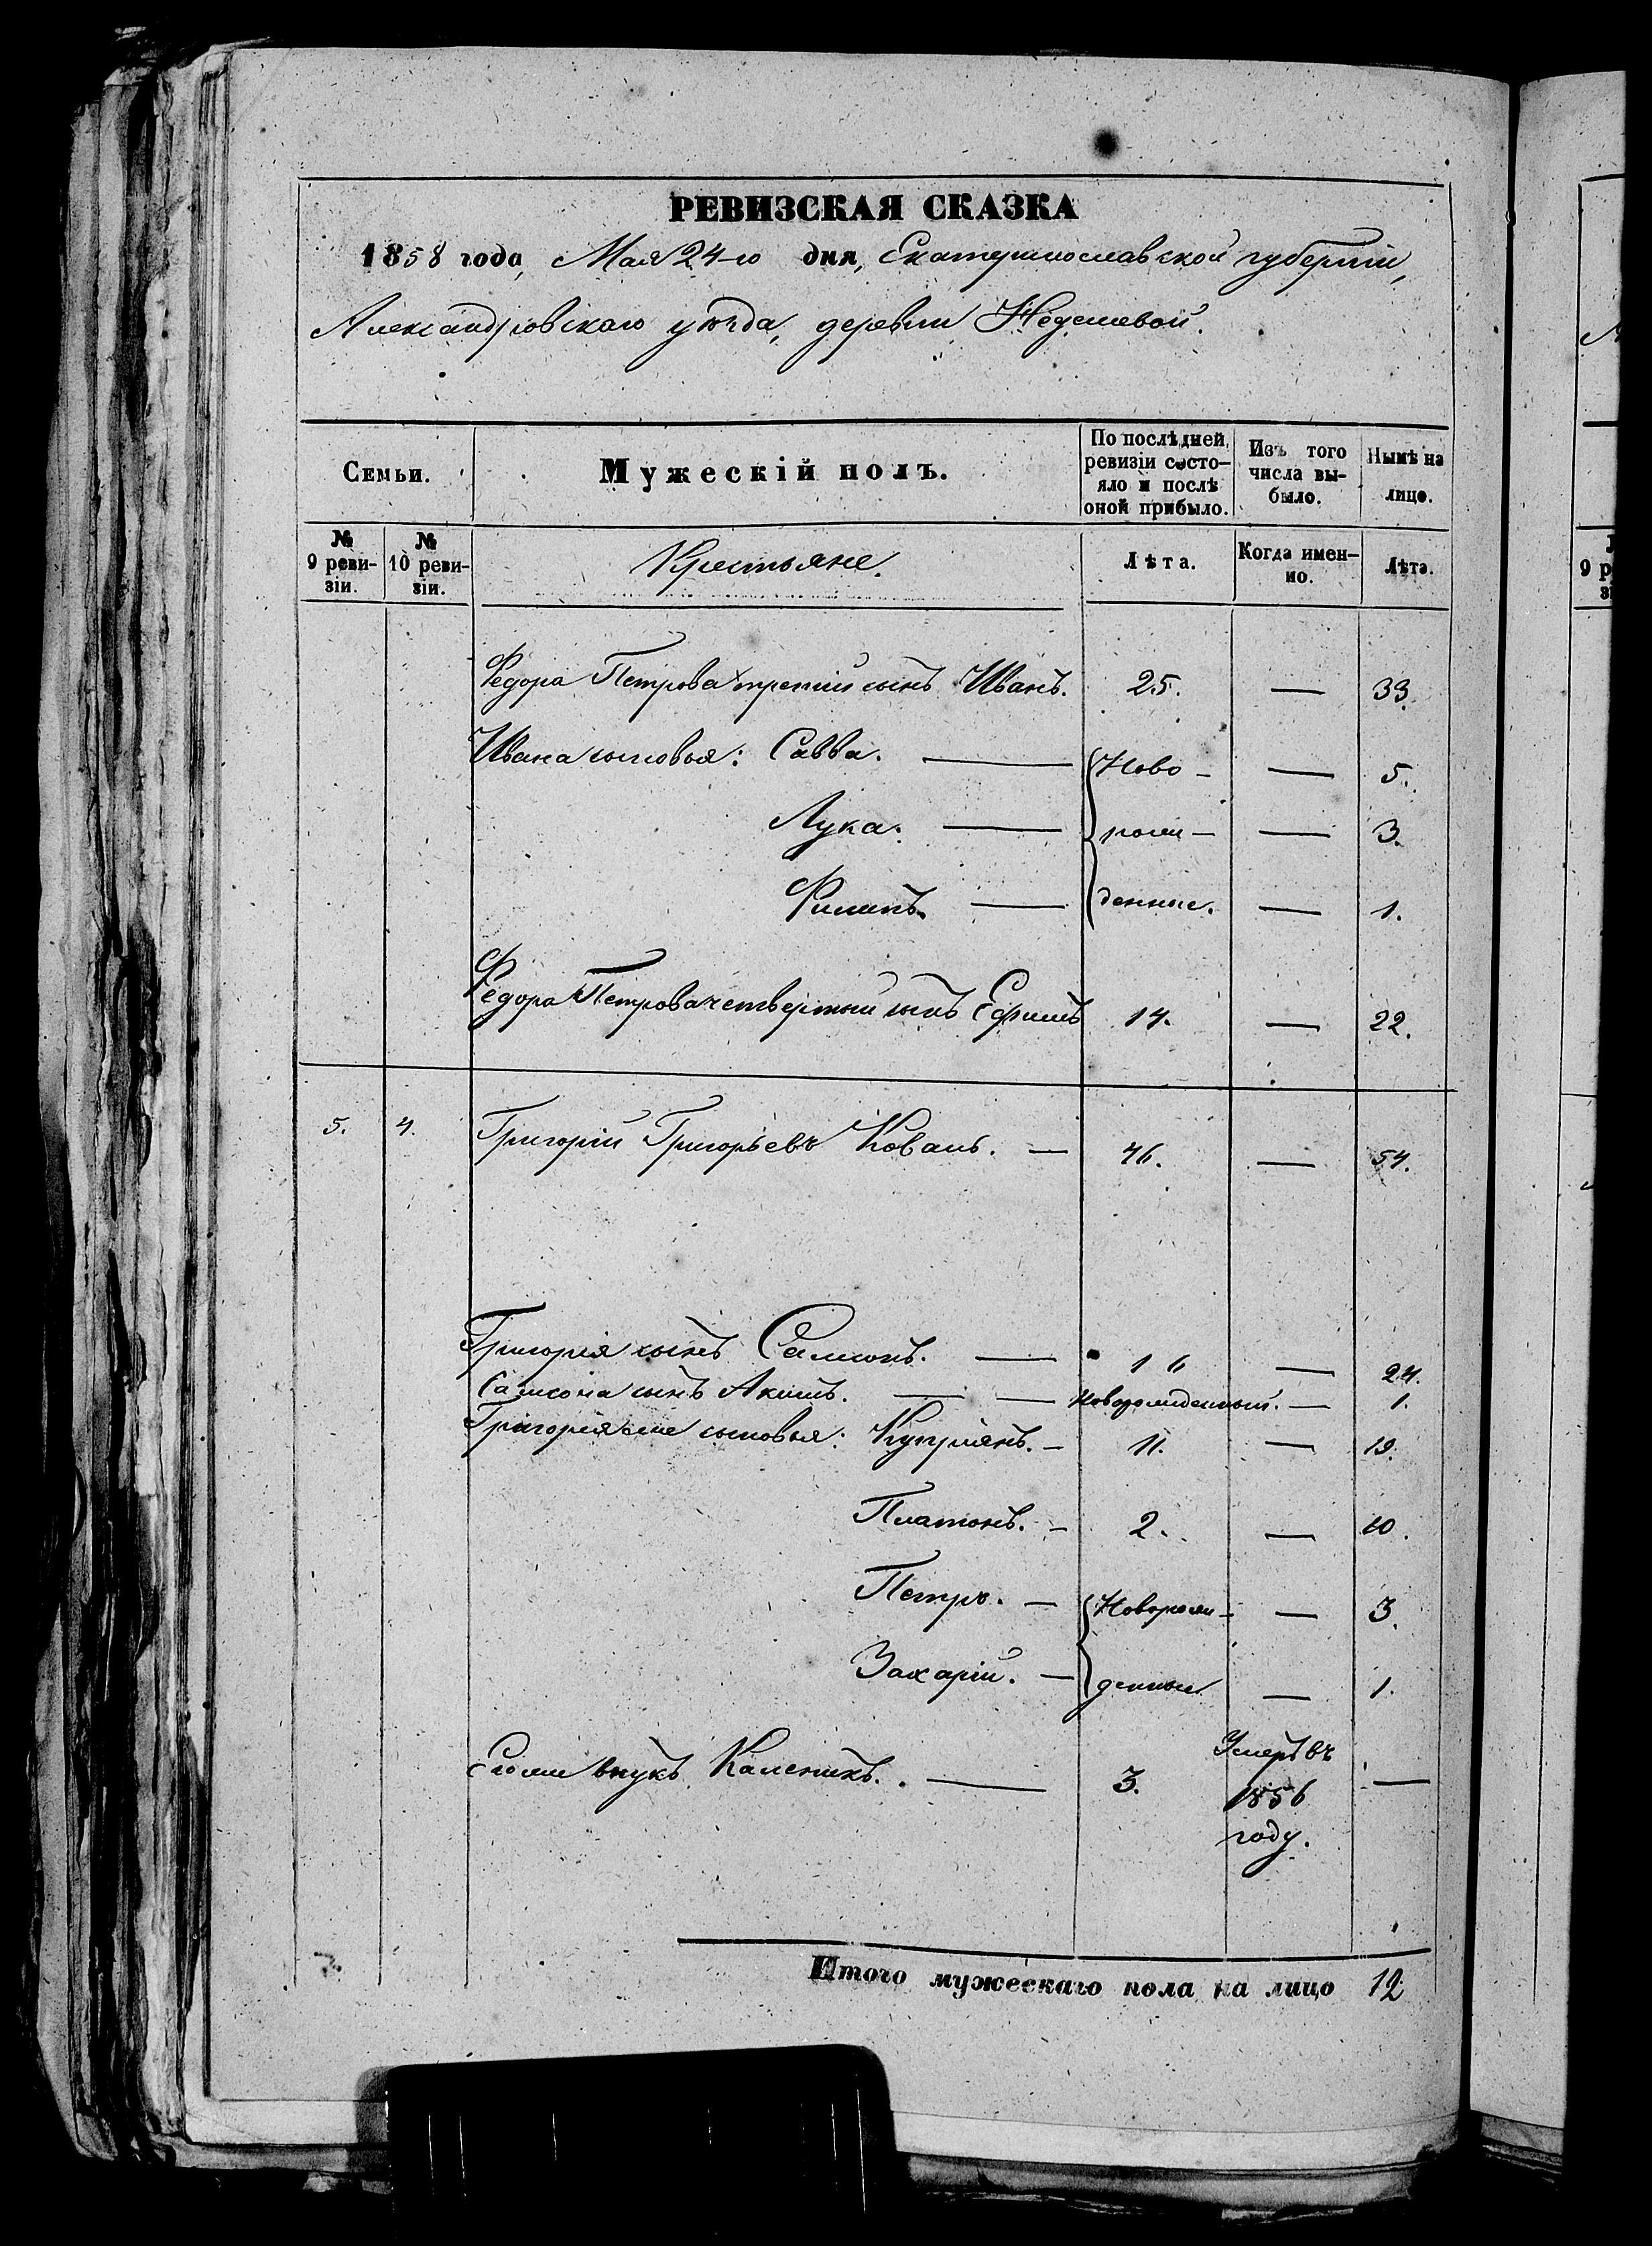 РЕВИЗСКАЯ СКАЗКА
1858 года, Мая 24-го дня, Екатеринославской губерніи,
Александровскаго уѣзда, деревни
Семьи.
Мужескій полъ.
По послѣдней ревизіи состо-
яло и послѣ
оной прибыло.
Изъ того
числа вы-
было.
Нынѣ на
лицо.
№
9 реви-
зіи.
№
10 реви-
зіи.
Крестьяне.
Лѣта.
Когда имен-
но.
Лѣта.
Федора Петрова третій сынъ Иванъ. 25. — 33.
Ивана сыновья: Савва. — Ново- — 5.
Лука. — рож- — 3.
Филипъ. — денные. — 1.
Федора Петрова четвертый сынъ Ефимъ 14. — 22.
5. 4. Григорій Григорьевъ Коваль. — 46. — 54.
Григорія сынъ Самсонъ. — 16 — 24.
Самсона сынъ Акимъ. — — Новорожденный. — 1.
Григорія еще сыновья: Купріянъ. — 11. — 19.
Платонъ. — 2. — 10.
Петръ. — Новорож- — 3.
Захарій. — денные — 1.
Его же внукъ Каленикъ. — 3. Умеръ въ
1856 —
году.
Итого мужескаго пола на лицо 12
9 р